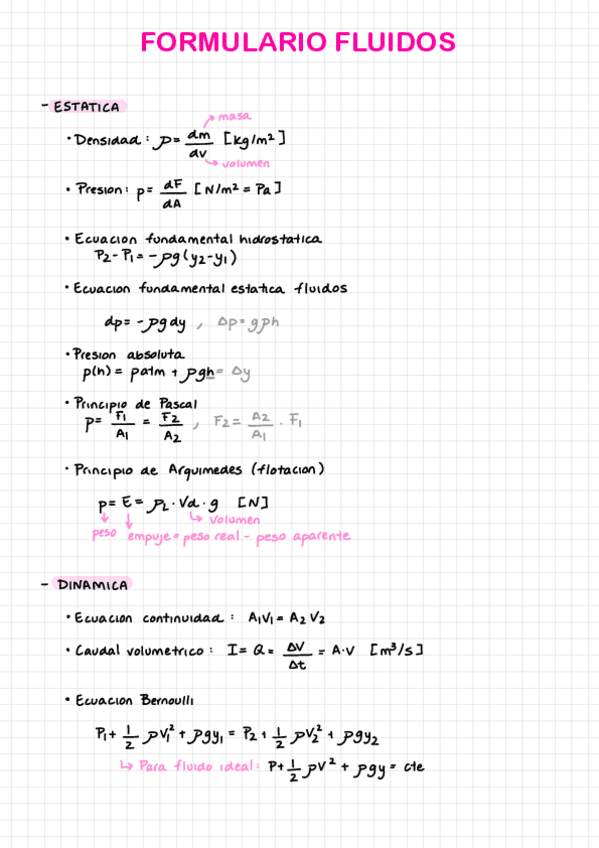 FORMULARIO FLUIDOS
- ESTATICA
masa
• Densidad: ρ = dm/dv [kg/m²]
volumen
• Presion: p = dF/dA [N/m² = Pa]
• Ecuacion fundamental hidrostatica
P₂ - P₁ = -ρg(y₂-y₁)
• Ecuacion fundamental estatica fluidos
dp = -ρg dy , Δp = gρh
• Presion absoluta
p(h) = patm + ρgh = Δy
• Principio de Pascal
p = F₁/A₁ = F₂/A₂ , F₂ = A₂/A₁ · F₁
• Principio de Arquimedes (flotacion)
p = E = ρL · Vd · g [N]
volumen
peso empuje = peso real - peso aparente
- DINAMICA
• Ecuacion continuidad: A₁V₁ = A₂V₂
• Caudal volumetrico: I = Q = ΔV/Δt = A·v [m³/s]
• Ecuacion Bernoulli
P₁ + 1/2 ρV₁² + ρgy₁ = P₂ + 1/2 ρV₂² + ρgy₂
↳ Para fluido ideal: P + 1/2 ρV² + ρgy = cte